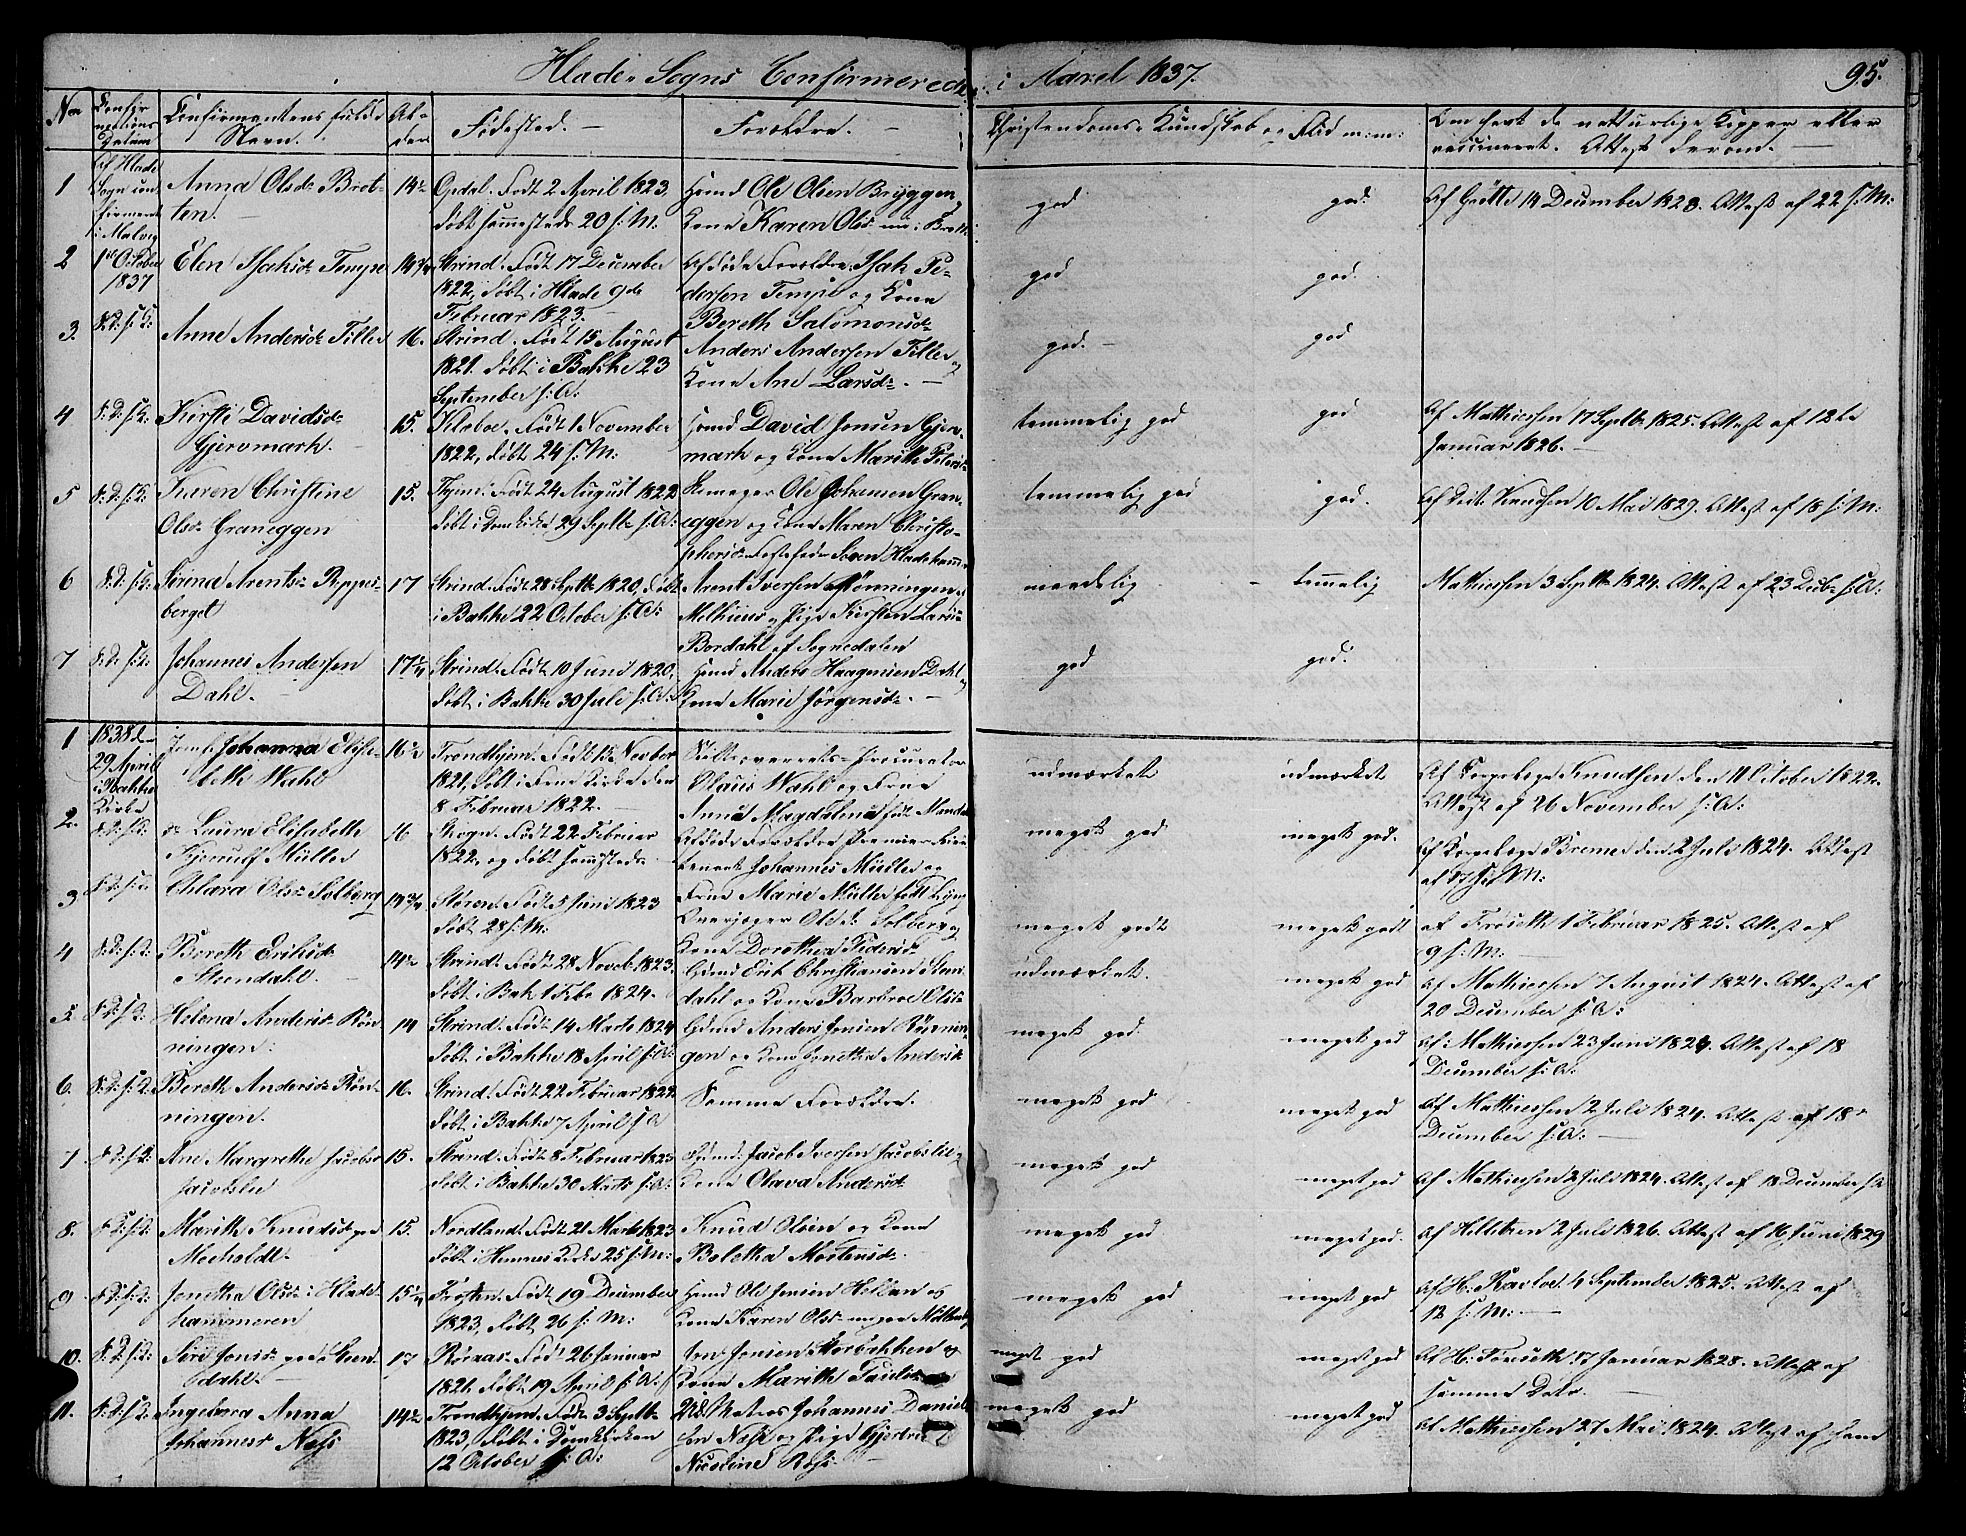 Hlade Sogns Confirmerede i Aaret 1837.
95.
No
Confirmations Datum
Confirmantens fulde Navn.
Alder
Fødested.
Forældre.
Christendoms Kundskab og Flid m: m:
Om havt de naturlige Kopper eller vaccineret. Attest derom.
1
Af Hlade Sogn confirmeret i Malvig 1ste October 1837
Anna Olsdr Bratten.
14½
Opdal. Født 2 April 1823, døbt sammesteds 20 s: M:
Huusmd Ole Olsen Bryggen, Kone Karen Olsdr
god
god.
Af Grøtte 14 December 1828. Attest af 22 s: M:
2
Elen Isaksdr Tempe
14¾
Strind. Født 17 December 1822, døbt i Hlade 9de Februar 1823.
Afdøde Forældre: Isak Pedersen Tempe og Kone Bereth Salomonsdr
god
god.
3.
S: D: s: S:
Anne Andersdr Tiller
16.
Strind. Født 15 August 1821. døbt i Bakke 23 September s: A:
Anders Andersen Tiller, Kone Ane Larsdr.
god.
god
4
S: D: s: S:
Kirsti Davidsdr Gjervmark.
15.
Klæboe. Født 1 November 1822, døbt 24 s: M:
Huusmd David Jensen Gjervmark og Kone Marith Pedersdr
temmelig god
god
Af Mathiessen 17 Septbr 1825. Attest af 12te Januar 1826.
5
S: D: s: S:
Karen Christine Olsdr Graneggen
15.
Thjem. Født 24 August 1822 døbt i Domkirke 29 Septbr s: A:
Skomager Ole Johansen Graneggen og Kone Maren Christophersdr
temmelig god
god.
Af Knudsen 10 Mai 1829. Attest af 18 s: M:
6
S: D: s: S:
Serina Arentsdr Rippesberget
17
Strind. Født 28 Septbr 1820, døbt i Bakke 22 October s: A:
Arent Iversen Rønningen, og Pige Kirsten Larsdr Bordahl af Sognedalen
maadelig
temmelig
Mathiessen 3 Septbr 1824. Attest af 23 Decbr s: A:
7
S: D: s: S:
Johannes Andersen Dahl.
17¼
Strind. Født 10 Juni 1820, døbt i Bakke 30 Juli s: A:
Huusmd Anders Haagensen Dahl, Kone Marie Jørgensdr.
god
god.
1
1838 d. 29 April i Bakke Kirke
Jomf. Johanna Elisabeth Wahl
16½
Trondhjem. Født 13 Novber 1821, døbt i Frue Kirke den 8 Februar 1822.
Stiftsoverrets-Procurator Olaus Wahl og Frue Anna Magdalena født
udmærket
udmærket
Af Corpslæge Knudsen den 11 October 1822. Attest af 26 November s: A:
2.
S: D: s: S:
dr Laura Elisabeth Kjerulf Müller
16
Skogn. Født 22 Februar 1822, og døbt sammesteds
Afdøde Forældre Premier Lieutenant Johannes Müller og Frue Marie Müller født
meget god
meget god.
Af Corpslæge Bremer den 2 Juli 1824. Attest af 17 s: M:
3
S: D: s: S:
Chlara Olsdr Solberg
14¾
Støren. Født 5 Juni 1823 døbt 28 s: M:
Overjæger Ole Solberg, Kone Dorothea Pedersdr
meget godt
meget godt
af Frøseth 1 Februar 1825. Attest af 9 s: M:
4
S: D: s: S:
Bereth Eriksdr Steendahl.
14½
Strind. Født 28 Novbr 1823. døbt i Bak. 1 Febr 1824.
Gdmd Erik Christiansen Steendahl og Kone Barbroe Olsdr
udmærket.
meget god
Af Mathiessen 7 August 1824. Attest af 20 December s: A:
5.
S: D: s: S:
Helena Andersdr Rønningen.
14
Strind. Født 14 Marts 1824 døbt i Bakke 18 April s: A:
Gdmd Anders Jensen Rønningen og Kone Agnetha Andersdr
meget god.
meget god
Af Mathiessen 23 Juni 1824. Attest af 18 December s: A:
6.
S: D: s: S:
Bereth Andersdr Rønningen.
16.
Strind. Født 22 Februar 1822. døbt i Bakke 7 April s: A
Samme Forældre.
meget god
meget god
Af Mathiessen 2 Juli 1824. Attest af 18 December s: A:
7
S: D: s: S:
Ane Margrethe Jacobsdr Jacobslie
15.
Strind. Født 8 Februar 1823 døbt i Bakke 30 Marts s: A:
Gdmd: Jacob Iversen Jacobslie, Kone Olava Andersdr
meget god
meget god
Af Mathiessen 2 Juli 1824. Attest af 18 December s: A
8.
S: D: s: S:
Marith Knudsdr paa Moeholdt.
15.
Nordland. Født 21 Marts 1823 døbt i Hemnes Kirke 25 s: M:
Knud Olsen og Kone Boletha Mortensdr.
meget god
meget god.
Af Hilletzen 2 Juli 1826. Attest af 16 Juni 1829
9
S: D: s: S:
Jonetha Olsdr i Hladehammeren
15¼
Frosten. Født 19 December 1823, døbt 26 s: M:
Huusmd Ole Jonsen Hellan og Kone Karen Olsdr
meget god
meget god
Af H: September 1825. Attest af 12 s: M:
10.
S: D: s: S:
Siri Jonsdr paa Steendahl.
17
Røraas. Født 26 Januar 1821. døbt 19 April s: A:
Jon Jonsen Storbækken og Kone Marith Paulsdr
meget god
meget god
Af H: Forseth 17 Januar 1828. Attest af samme Dato.
11.
S: D: s: S:
Ingebora Anna Johannesdr Næss
14½
Trondhjem. Født 3 Septbr 1823, døbt i Domkirken 12 October s: A:
Matros Johannes Danielsen Næss og Pige Gjertrud Nicoline Ross
meget god
meget god
Af Mathiessen 27 Mai 1824. Attest af samme